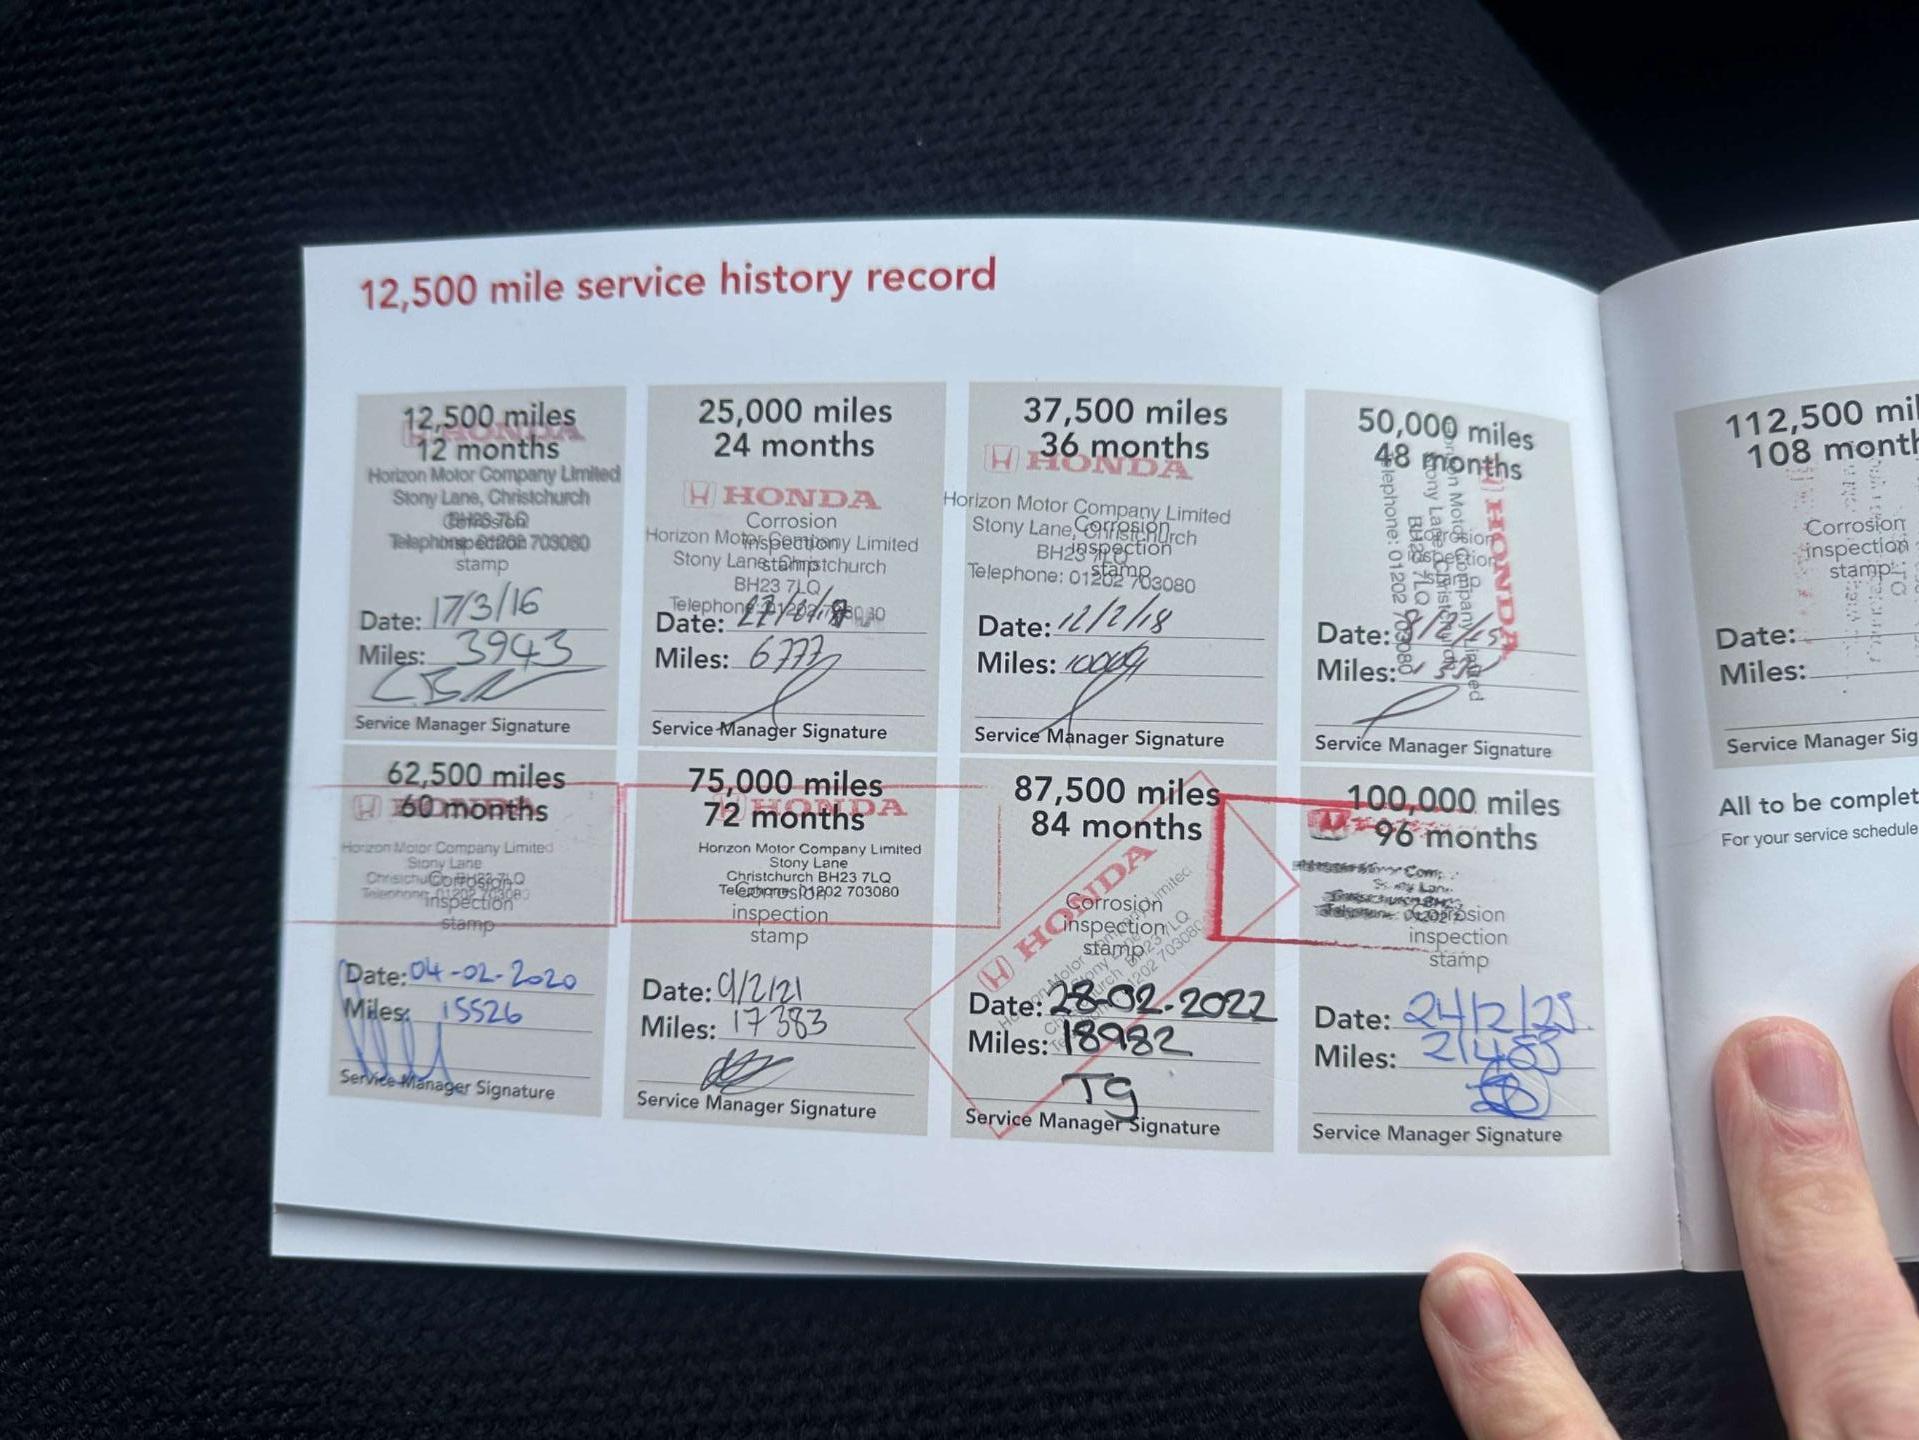 12,500 mile service history record
12,500 miles
12 months
HONDA
Horizon Motor Company Limited
Stony Lane, Christchurch
BH23 7LQ
Corrosion
Telephone: 01202 703080
inspection
stamp
Date: 17/3/16
Miles: 3943
Service Manager Signature
25,000 miles
24 months
HONDA
Corrosion
Horizon Motor Company Limited
inspection
Stony Lane, Christchurch
stamp
BH23 7LQ
Telephone: 01202 703080
Date:
Miles: 6777
Service Manager Signature
37,500 miles
36 months
HONDA
Horizon Motor Company Limited
Stony Lane, Christchurch
Corrosion
BH23 7LQ
inspection
stamp
Telephone: 01202 703080
Date: 12/2/18
Miles:
Service Manager Signature
50,000 miles
48 months
HONDA
Horizon Motor Company Limited
Stony Lane, Christchurch
BH23 7LQ
Telephone: 01202 703080
Corrosion
inspection
stamp
Date:
Miles:
Service Manager Signature
62,500 miles
60 months
HONDA
Horizon Motor Company Limited
Stony Lane
Christchurch BH23 7LQ
Corrosion
Telephone: 01202 703080
inspection
stamp
Date: 04-02-2020
Miles: 15526
Service Manager Signature
75,000 miles
72 months
HONDA
Horizon Motor Company Limited
Stony Lane
Christchurch BH23 7LQ
Telephone: 01202 703080
Corrosion
inspection
stamp
Date: 9/2/21
Miles: 17383
Service Manager Signature
87,500 miles
84 months
HONDA
Horizon Motor Company Limited
Stony Lane
Christchurch BH23 7LQ
Telephone: 01202 703080
Corrosion
inspection
stamp
Date: 28-02-2022
Miles: 18982
TG
Service Manager Signature
100,000 miles
96 months
Corrosion
inspection
stamp
Date: 24/2/23
Miles: 21483
Service Manager Signature
112,500 mil
108 month
Corrosion
inspection
stamp
Date:
Miles:
Service Manager Sig
All to be complet
For your service schedule